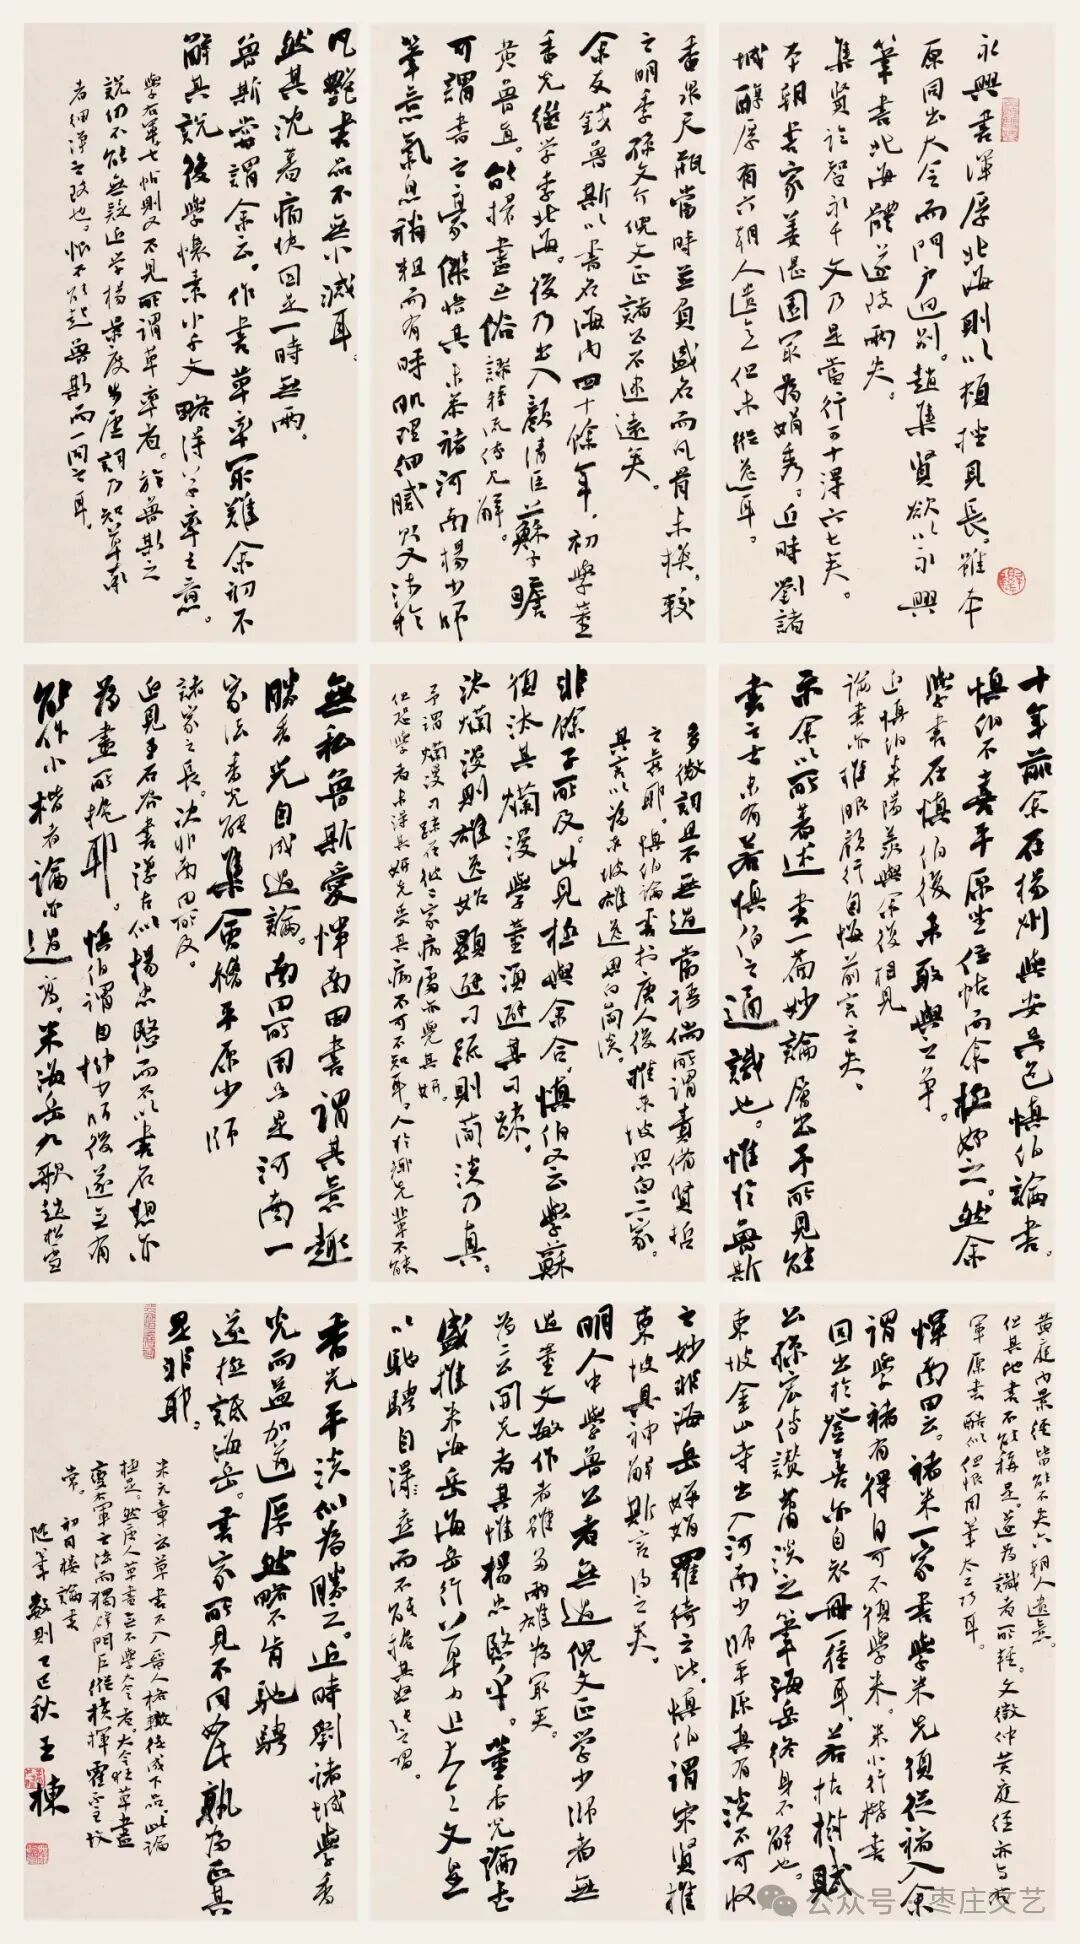 永興書渾厚北海則以頓挫見長。雖本
原同出大令而門戶迥別。趙集賢欲以永興
筆書北海體遂致兩失。
集賢臨智永千文乃是當行可十得六七矣。
本朝書家姜湛園最為娟秀。近時劉諸
城醇厚有六朝人遺意但未縱逸耳。
香泉尺瓶當時並負盛名而凡骨未換。較
之明季孫文介倪文正諸公不逮遠矣。
余友錢魯斯以書名海內四十餘年，初學董
香光繼學李北海。後乃出入顏清臣蘇子瞻
黃魯直。能掃盡正俗謬種流傳凡解。
可謂書之豪傑惜其未恭褚河南楊少師
筆意氣息稍粗而有時肌理細膩則又涉於
凡艷書品不無小減耳。
然其沈著痛快固是一時無兩。
魯斯嘗謂余云。作書草率最難余初不
解其說後學懷素小千文略得草率之意。
學右軍七帖則又不見所謂草率者。於魯斯之
說仍不能無疑近學楊景度步虛詞乃知草率
者細淨之致也。惜不能起魯斯而一問之耳。
十年前余在揚州與安吳包慎伯論書。
慎伯不喜平原坐位帖而余極好之。然余
學書在慎伯後未敢與之爭。
近慎伯來陽羨與余復相見
論書亦推眼顏行自悔前言之失。
示余以所著述書一篇妙論層出予所見能
書之士未有若慎伯之通識也。惟於魯斯
多微詞且不無過當語倘所謂責備賢哲
之義耶。慎伯論書於唐人後推東坡思白二家。
其言以為東坡雄逸思白簡淡。
非餘子所及。此見極與余合。慎伯又云學蘇
須汰其爛漫學董須避其凋疎，
汰爛漫則雄逸始顯避凋疏則簡淡乃真。
予謂爛漫凋疎在彼二家病處亦覺其妍。
但恐學者未得其妍先受其病不可不知耳。人於鄉先輩不能
無私魯斯愛惲南田書謂其意趣
勝香光自成過論。南田所用只是河南一
家法香光能集會稽平原少師
諸家之長。決非南田所及。
近見王石谷書渾古似楊忠愍而不以書名想亦
為畫所掩耶。慎伯謂自柳少師後遂無有
能作小楷者論亦過高，米海岳九歌趙松雪
黃庭內景經皆能不失六朝人遺意。
但其他書不能稱是。遂為識者所輕。文徵仲黃庭經亦與右
軍原本酷似但恨用筆太工巧耳。
惲南田云。褚米一家書學米先須從褚入余
謂學褚有得自可不須學米。米小行楷書
固出於登善亦自哀冊一種耳，若枯樹賦
公孫宏傳讚蕭淡之筆海岳終身不解也。
東坡金山寺出入河南少師平原具有淡不可收
之妙非海岳娟娟羅綺之比。慎伯謂宋賢推
東坡具神解斯言得之矣。
明人中學魯公者無過倪文正學少師者無
過董文敏作者雖多兩雄為最矣。
為二公開先者其惟楊忠愍乎。董香光論書
盛推米海岳海岳行草力追大令文皇
以馳騁自得意而不能掩其怒張之習。
香光平淡似為勝之。近時劉諸城學香
光而益加遒厚然略不肯馳騁
遂極詆海岳。書家所見不同如此孰為正真
是非耶。
米元章云草書不入晉人格轍徒成下品。此論
極是。然唐人草書無不學大令者。大令狂草盡
變右軍之法而獨闢門戶縱橫揮霍不主故
常。初月樓論書
隨筆數則乙巳秋。王棟
公众号·枣庄文艺